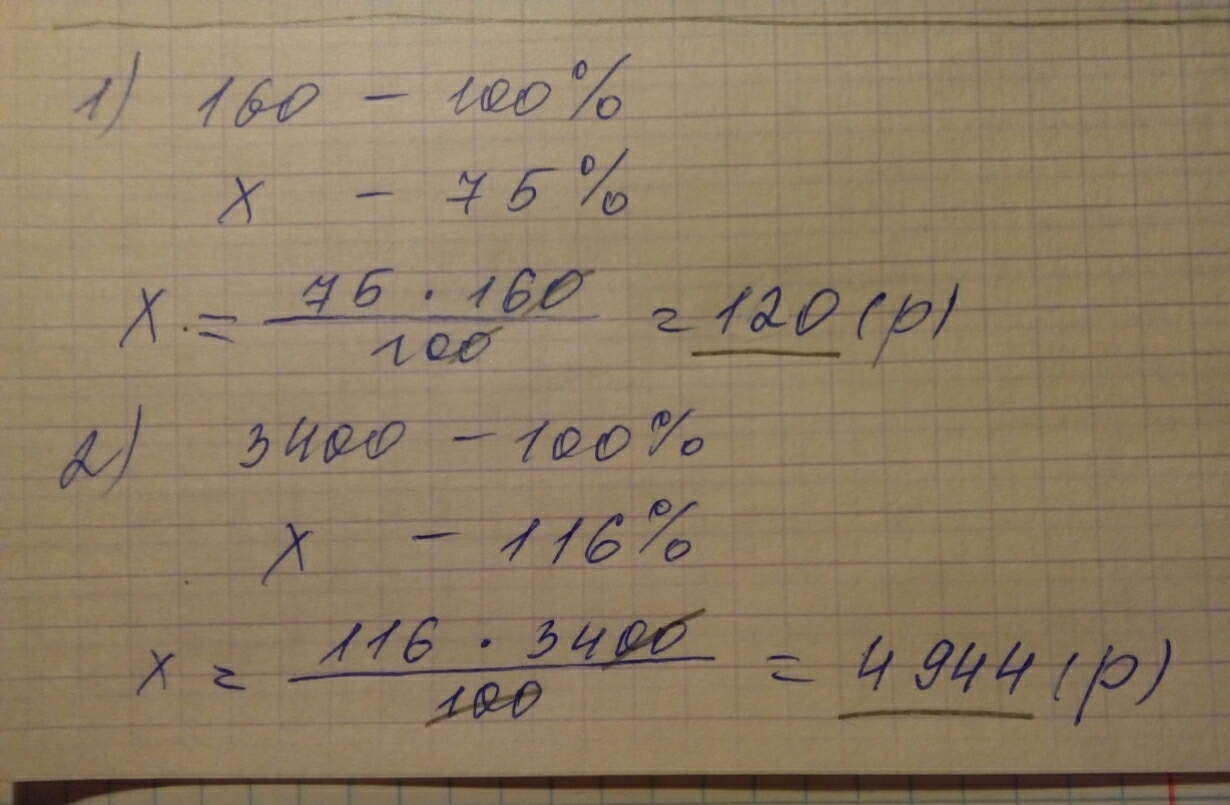 1) 160 - 100%
x - 75%
x = 75 · 160 / 100 = 120 (р)
2) 3400 - 100%
x - 116%
x = 116 · 3400 / 100 = 4944 (р)